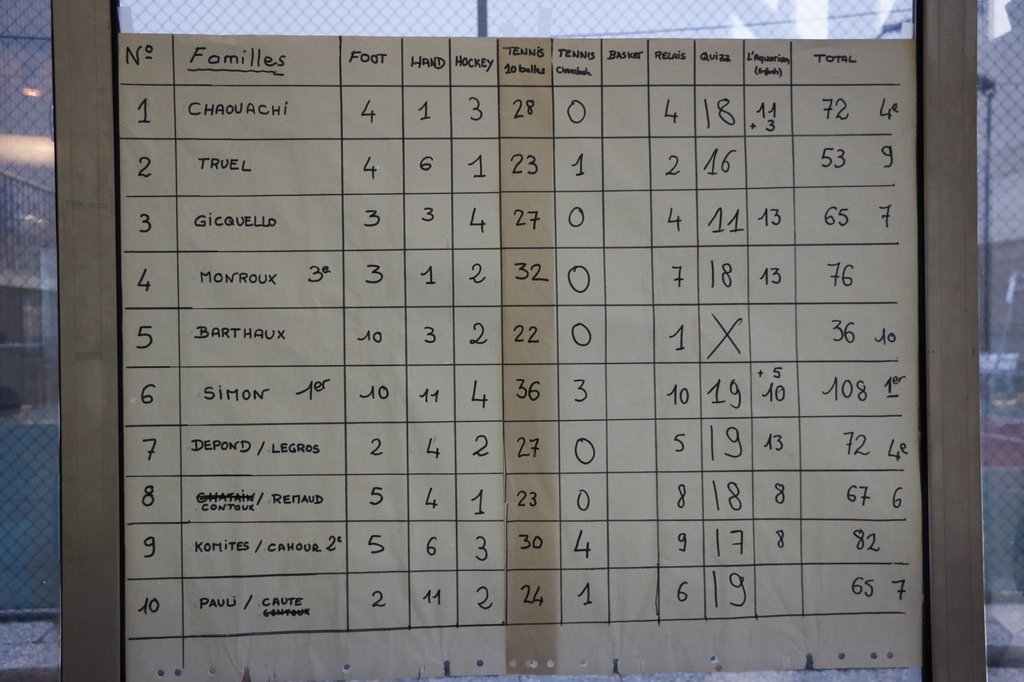 N° Familles FOOT HAND HOCKEY TENNIS 10 balles TENNIS BASKET RELAIS QUIZZ L'Aquarium TOTAL
1 CHAOUACHI 4 1 3 28 0 4 18 11 + 3 72 4e
2 TRUEL 4 6 1 23 1 2 16 53 9
3 GICQUELLO 3 3 4 27 0 4 11 13 65 7
4 MONROUX 3e 3 1 2 32 0 7 18 13 76
5 BARTHAUX 10 3 2 22 0 1 X 36 10
6 SIMON 1er 10 11 4 36 3 10 19 + 5 10 108 1er
7 DEPOND / LEGROS 2 4 2 27 0 5 19 13 72 4e
8 CHATAIN CONTOUX / RENAUD 5 4 1 23 0 8 18 8 67 6
9 KOMITES / CAHOUR 2e 5 6 3 30 4 9 17 8 82
10 PAULI / CAUTE CONTOUX 2 11 2 24 1 6 19 65 7